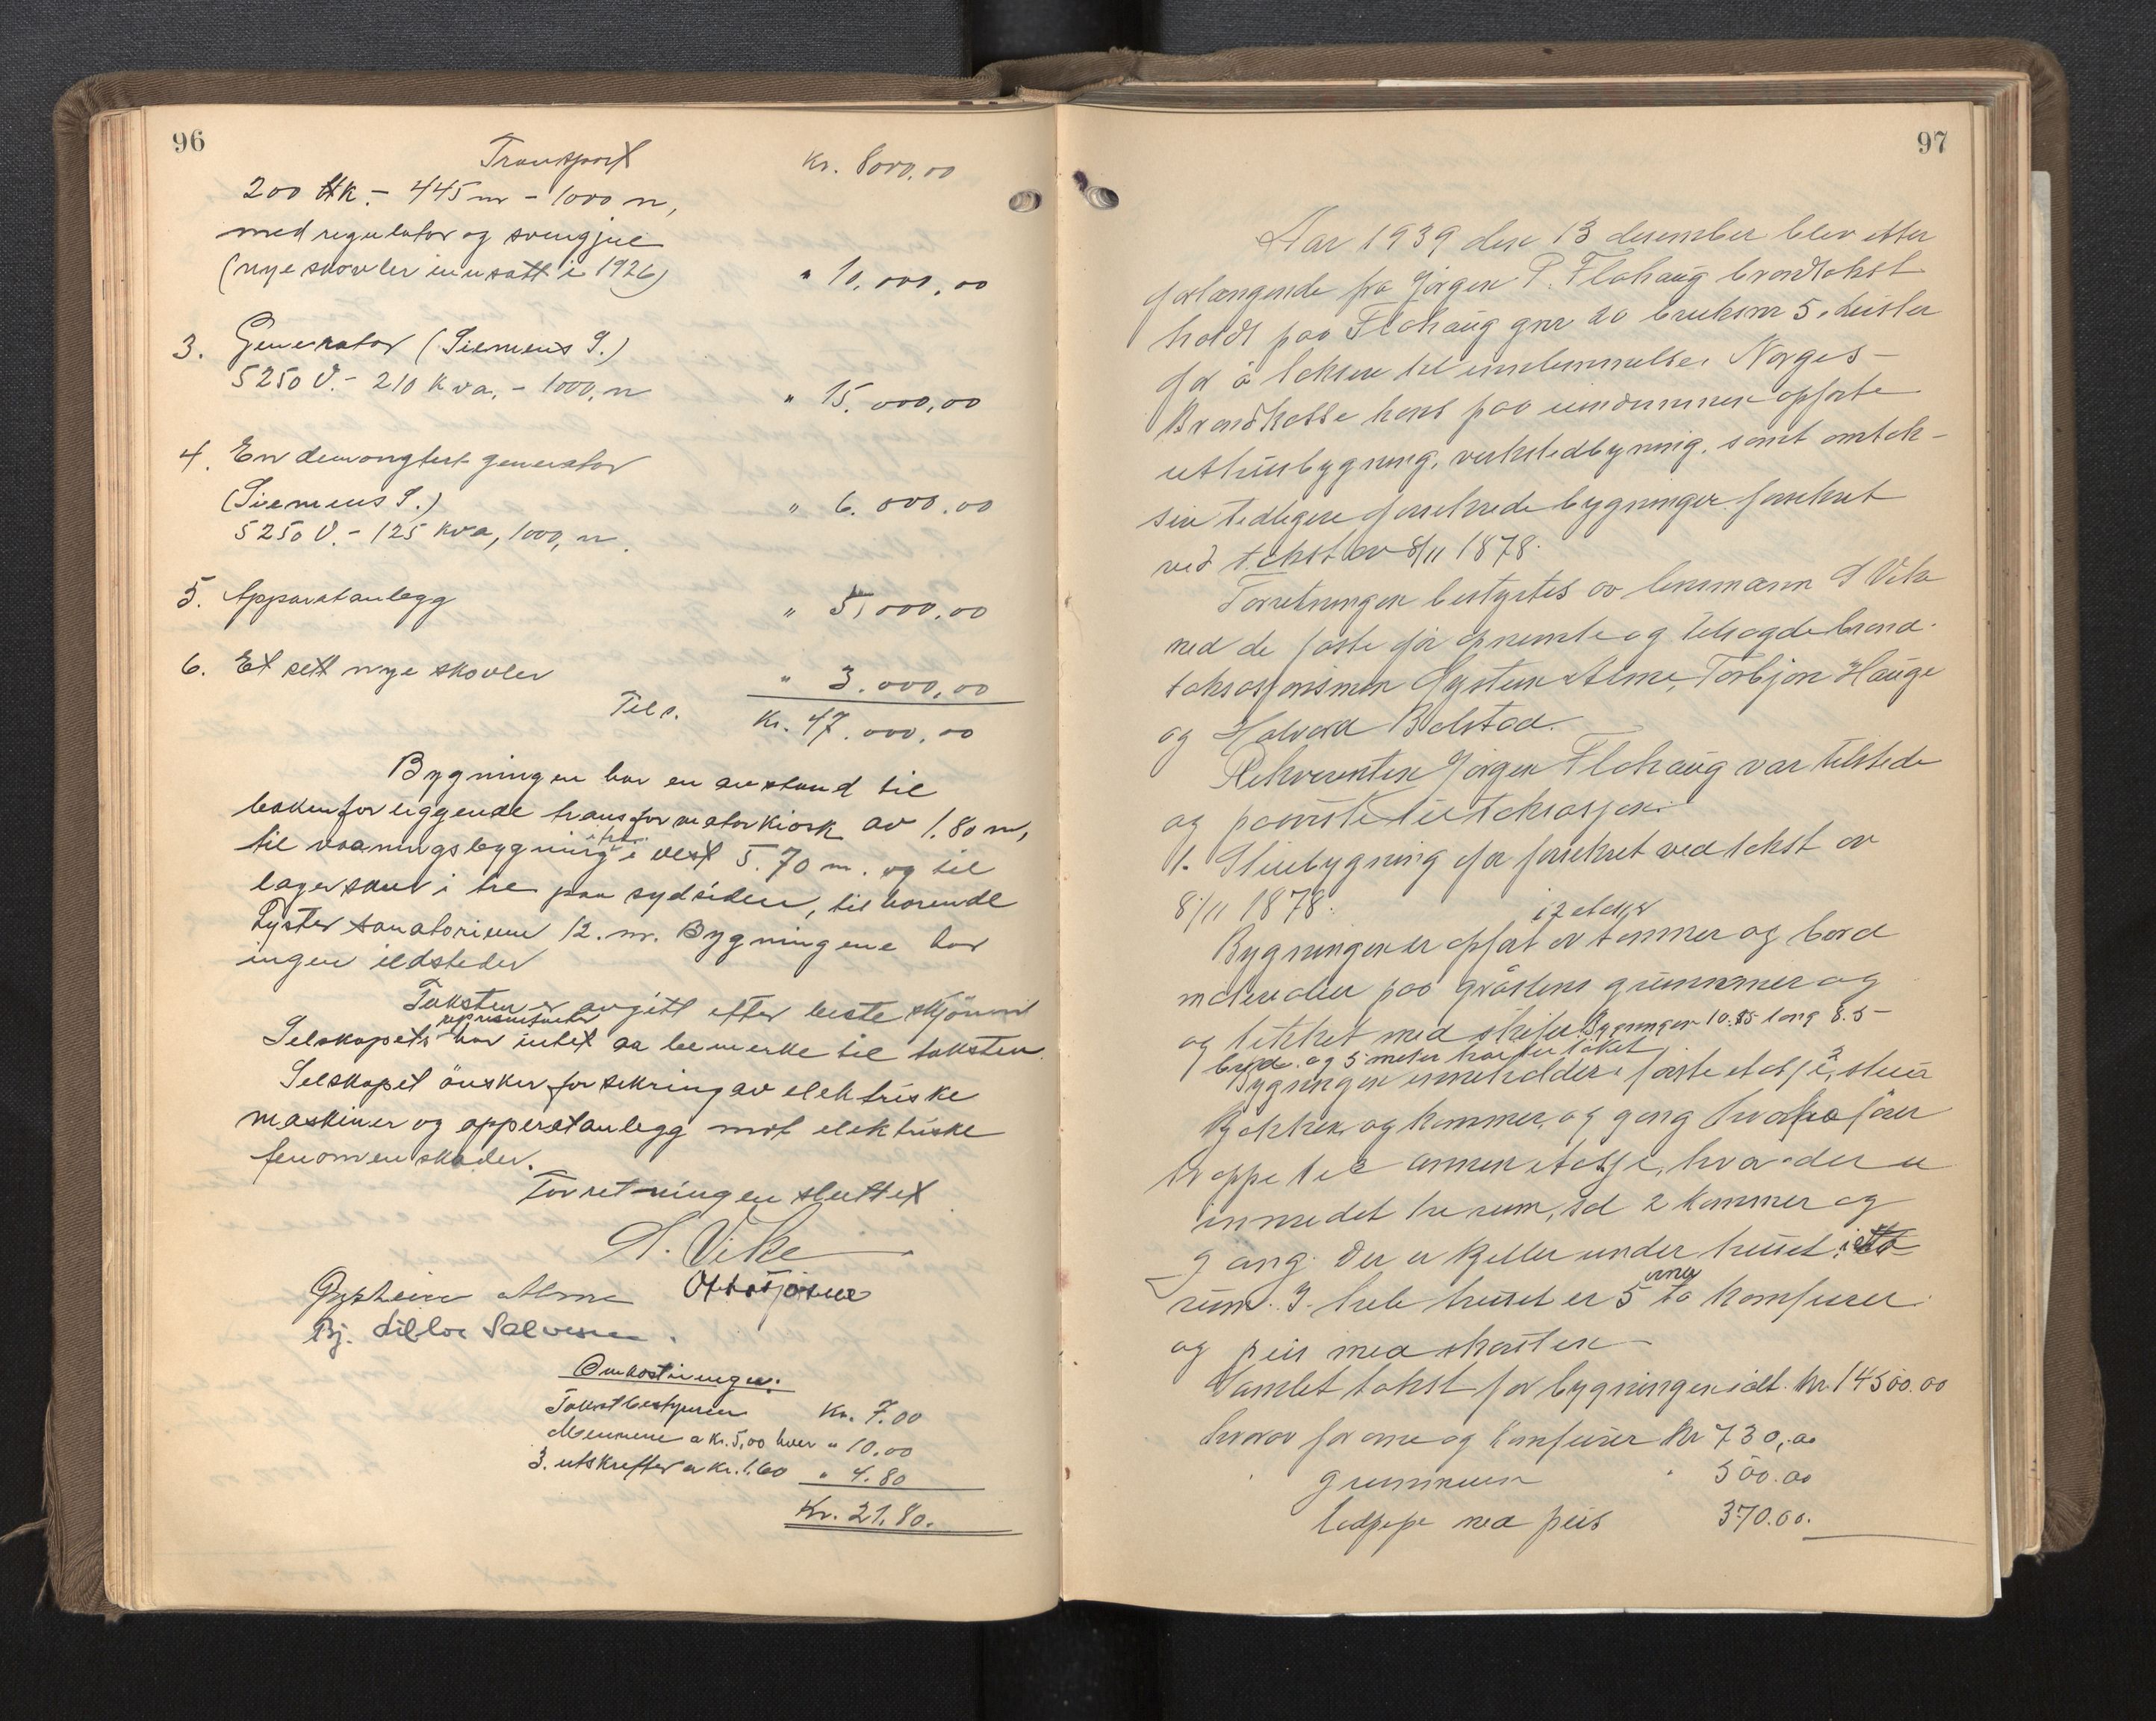 96
Transport Kr. 8000.00
200 Hk. - 445 m - 1000 n,
med regulator og svingjul
(nye skovler innsatt i 1926) " 10.000,00
3. Generator (Siemens S.)
5250 V. - 210 Kva. - 1000, n " 15.000,00
4. En demongtert generator
(Siemens S.) " 6.000.00
5250 V. - 125 Kva, 1000, n.
5. Apparatanlegg " 5,000,00
6. Et sett nye skovler " 3.000,00
Tils. Kr. 47.000,00
Bygningen har en avstand til
bakenforliggende transformatorkiosk av 1.80 m,
til vaaningsbygning i tre i vest 5.70 m. og til
lagerskur i tre paa sydsiden, tilhørende
Lyster sanatorium 12. m. Bygningene har
ingen ildsteder
Taksten er avgitt etter beste skjønn
Selskapets representanter har intet aa bemerke til taksten.
Selskapet ønsker forsikring av elektriske
maskiner og apperatanlegg mot elektriske
fenomenskader.
Forretningen sluttet
S. Vike
Øystein Alme
Bj. Salvesen.
Omkostninger:
Takstbestyreren Kr. 7.00
Mennene a Kr. 5,00 hver " 10.00
3. utskrifter a kr. 1.60 " 4.80
Kr. 21.80.
97
Aar 1939 den 13 desember blev etter
forlangende fra Jørgen P. Flahaug brandtakst
holdt paa Flahaug gnr 20 bruksnr 5 i Luster
for å taksere til innlemmelse i Norges-
Brandkasse hans paa eiendommen opførte
uthusbygning, verkstedbyning, samt omtak-
sere tidligere forsikrede bygninger forsikret
ved takst av 8/11 1878.
Forretningen bestyrtes av lensmann S Vike
med de faste før opnevnte og edsagde brand-
taksasjonsmen Øystein Alme, Torbjørn Hauge
og Halvard Bolstad.
Rekvirenten Jørgen Flahaug var tilstede
og paaviste til taksasjon:
1. Stuebygning før forsikret ved takst av
8/11 1878.
Bygningen er opført i 2 etasjer av tømmer og bord
materialer paa gråstens grunnmur og
og tekket med skifer. Bygningen 10.85 lang 8.5-
bred og 5 meter høi til taket.
Bygningen inneholder i første etasje, 2 stuer
kjøkken og kammer, og gang hvorfra fører
trappe til annen etasje, hvor der er
innredet tre rum, sd 2 kammer og
gang. Der er kjeller under huset i
rum. I hele huset er 5 ovner to komfurer
og peis med skorsten
Samlet takst for bygningen ialt. kr. 14500.00
hvorav for ovne og komfurer kr 730,00
grunnmuren " 500.00
ledpipe med peis 370.00.